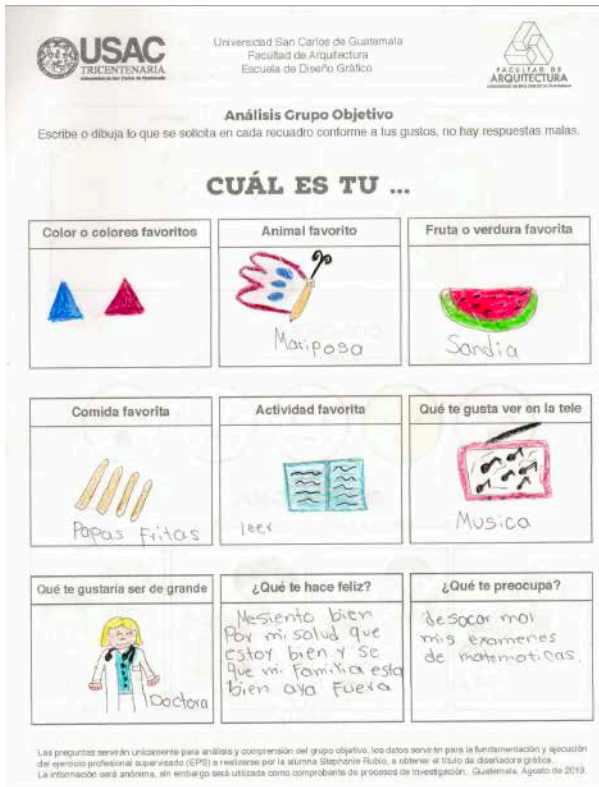 USAC
TRICENTENARIA
Universidad de San Carlos de Guatemala
Universidad San Carlos de Guatemala
Facultad de Arquitectura
Escuela de Diseño Gráfico
FACULTAD DE
ARQUITECTURA
Análisis Grupo Objetivo
Escribe o dibuja lo que se solicita en cada recuadro conforme a tus gustos, no hay respuestas malas.
CUÁL ES TU ...
Color o colores favoritos
Animal favorito
Mariposa
Fruta o verdura favorita
Sandia
Comida favorita
Papas Fritas
Actividad favorita
leer
Qué te gusta ver en la tele
Musica
Qué te gustaría ser de grande
Doctora
¿Qué te hace feliz?
Mesiento bien
Por mi salud que
estoy bien y se
que mi Familia esta
bien aya Fuera
¿Qué te preocupa?
desacar mal
mis examenes
de matematicas.
Las preguntas servirán unicamente para análisis y comprensión del grupo objetivo, los datos servirán para la fundamentación y ejecución
del ejercicio profesional supervisado (EPS) a realizarse por la alumna Stephanie Rubio, a obtener el título de diseñadora gráfica.
La información será anónima, sin embargo será utilizada como comprobante de procesos de investigación. Guatemala, Agosto de 2019.